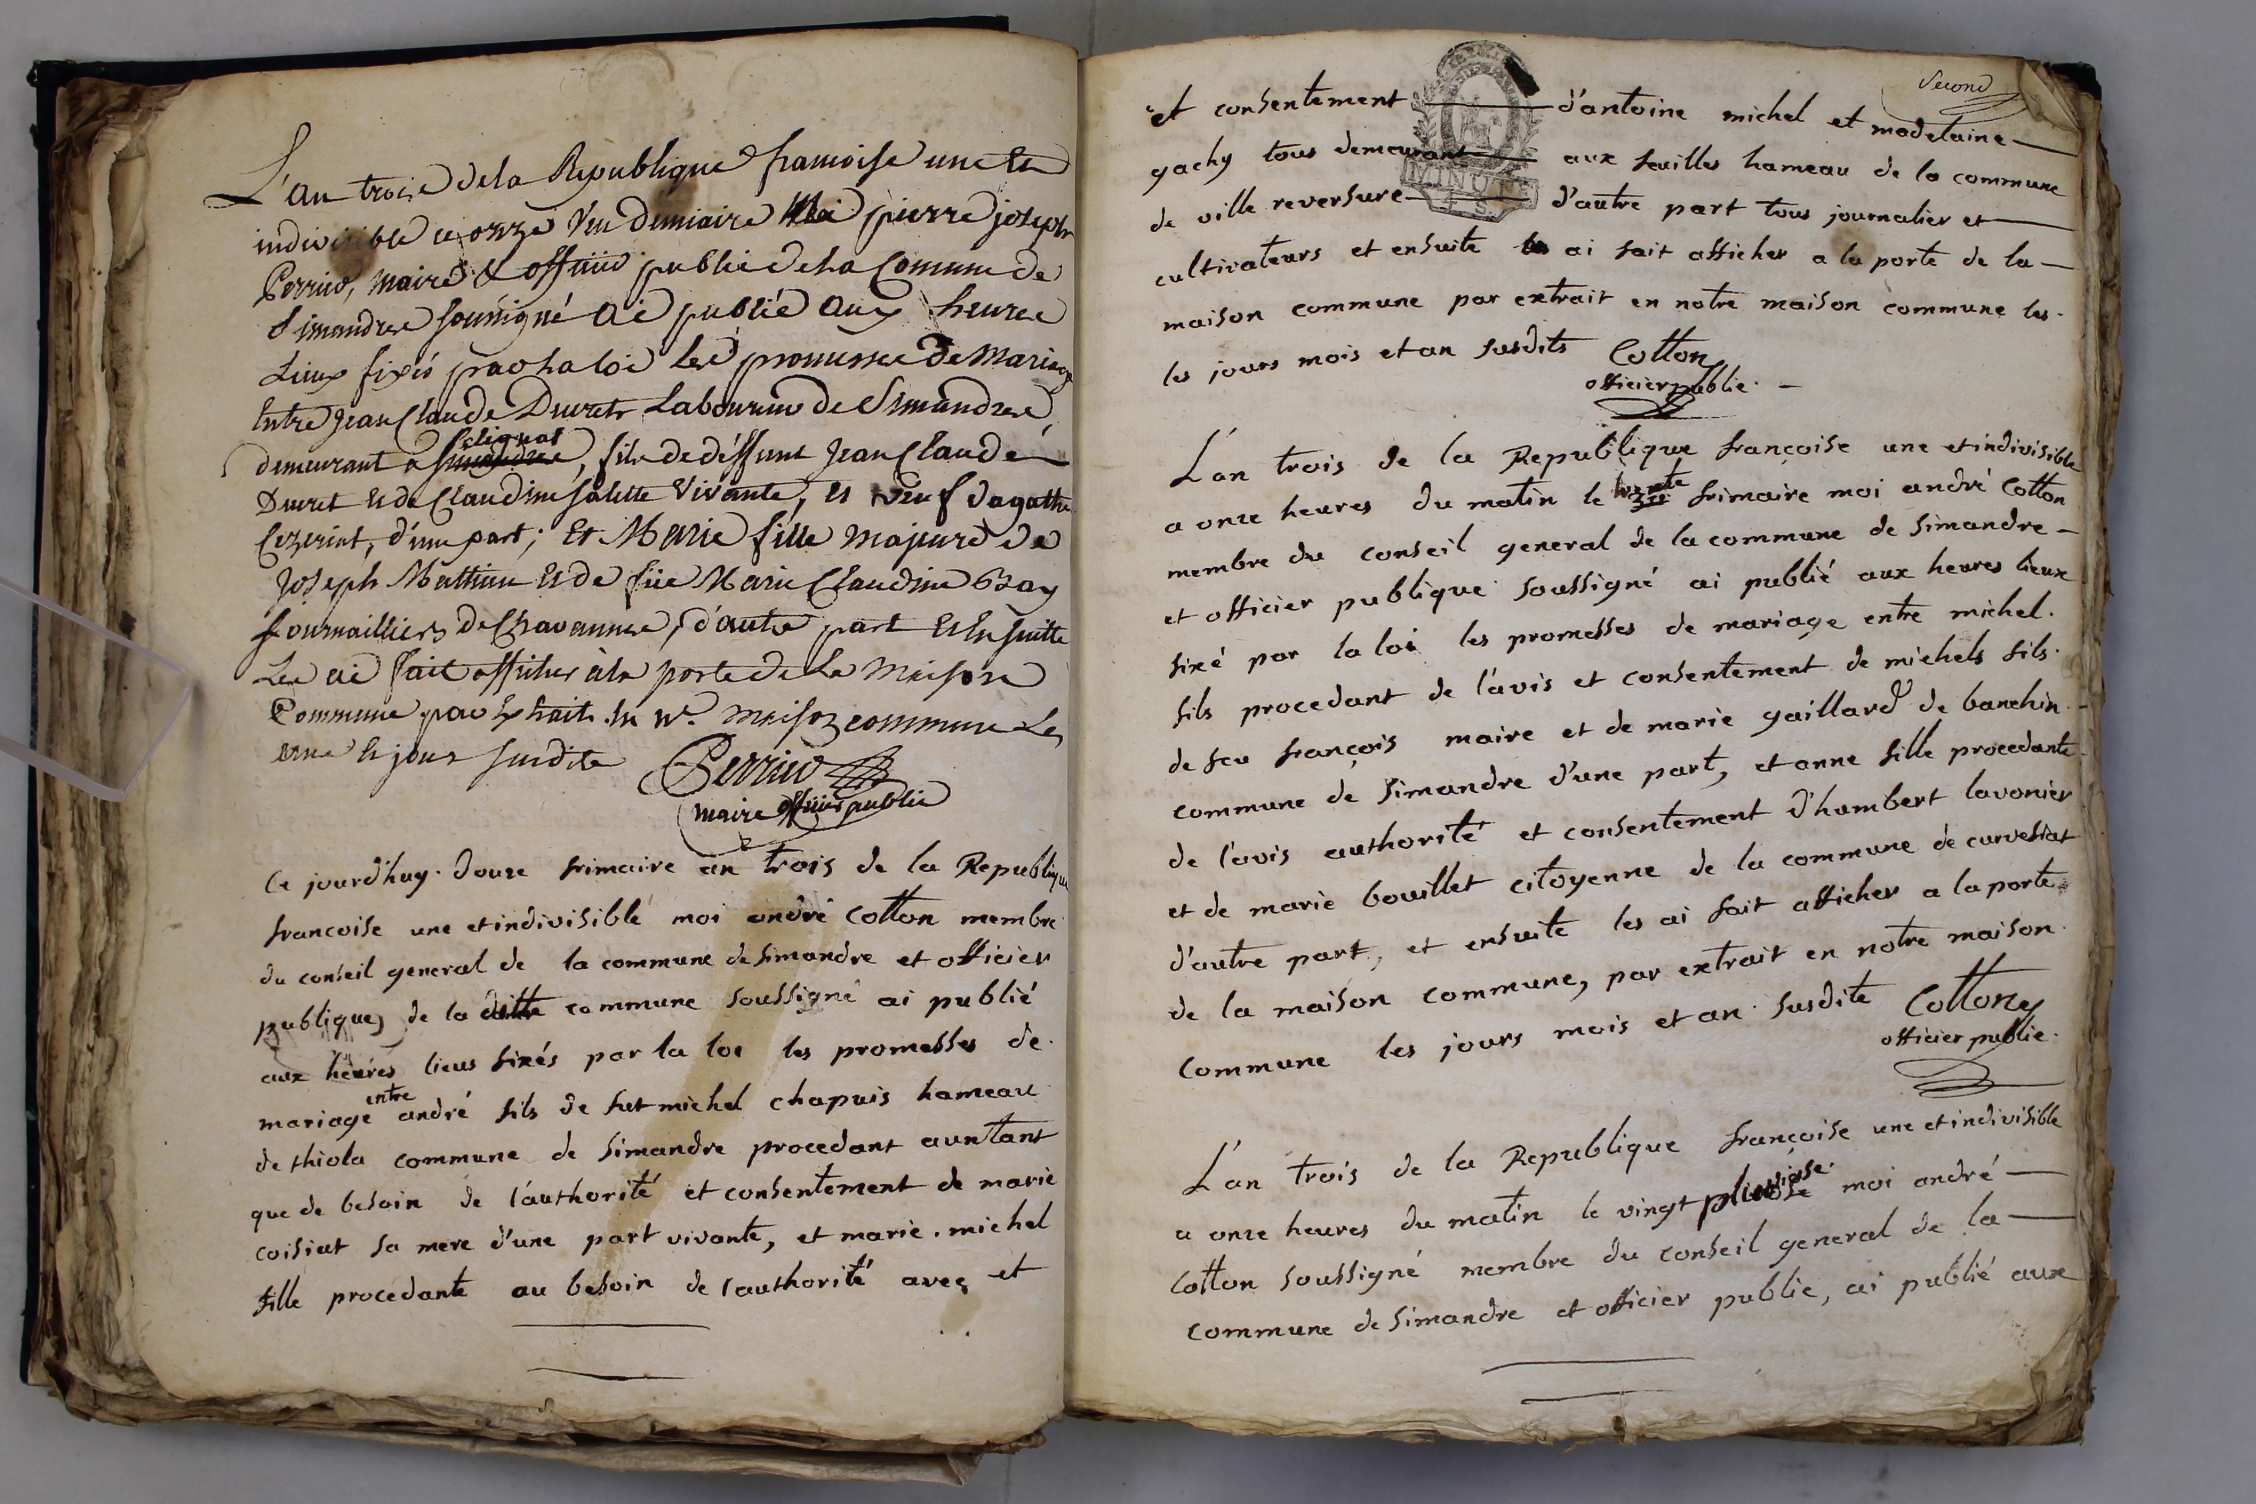 L'an trois de la Republique francoise une et
indivisible le onze Vendemiaire Moi pierre joseph
Perrier, maire & officier public de la Comune de
Simandre soussigné ai publié aux heures
Lieux fixés par la loi les promesses de Mariage
Entre Jean Claude Duret Laboureur de Simandre,
demeurant a Selignat, fils de déffunt Jean Claude
Duret et de Claudine Salette Vivante, et veuf dagathe
Cezeriat, d'une part; Et Marie fille majeure de
Joseph Mathieu et de füe Marie Claudine Bray
journailliers de Chavannes, d'autre part et Ensuitte
Les ai fait afficher à la porte de La Maison
Commune par Extrait en Nre. Maison commune Les
an et jours susdits Perrier
maire officier public
Ce jourd'huy. douze frimaire an trois de la Republique
francoise une et indivisible moi andré Cotton membre
du conseil general de la commune de simandre et officier
publique, de la ditte commune soussigné ai publié
aux heures lieus fixés par la loi les promesses de
mariage entre andré fils de fut michel chapuis hameau
de thiola commune de simandre procedant auntant
que de besoin de l'authorité et consentement de marie
coisiat sa mere d'une part vivante, et marie. michel
fille procedante au besoin de l'authorité avec et
Second
et consentement d'antoine michel et madelaine
gachy tous demeurant aux feuilles hameau de la commune
MINUTE
de ville reversure d'autre part tous journalier et
cultivateurs et ensuite les ai fait afficher a la porte de la
maison commune par extrait en notre maison commune les
les jours mois et an susdits Cotton
officier public.
L'an trois de la Republique françoise une et indivisible
a onze heures du matin le trente frimaire moi andré Cotton
membre du conseil general de la commune de simandre
et officier publique soussigné ai publié aux heures lieux
fixé par la loi les promesses de mariage entre michel.
fils procedant de l'avis et consentement de michels fils.
de feu françois maire et de marie gaillard de banchin
commune de simandre d'une part, et anne fille procedante
de l'avis authorité et consentement d'humbert lavonier
et de marie bouillet citoyenne de la commune de curvesiat
d'autre part, et ensuite les ai fait afficher a la porte
de la maison commune, par extrait en notre maison
commune les jours mois et an susdits Cotton
officier public.
L'an trois de la Republique françoise une et indivisible
a onze heures du matin le vingt pluviose moi andré
Cotton soussigné membre du conseil general de la
commune de simandre et officier public, ai publié aux